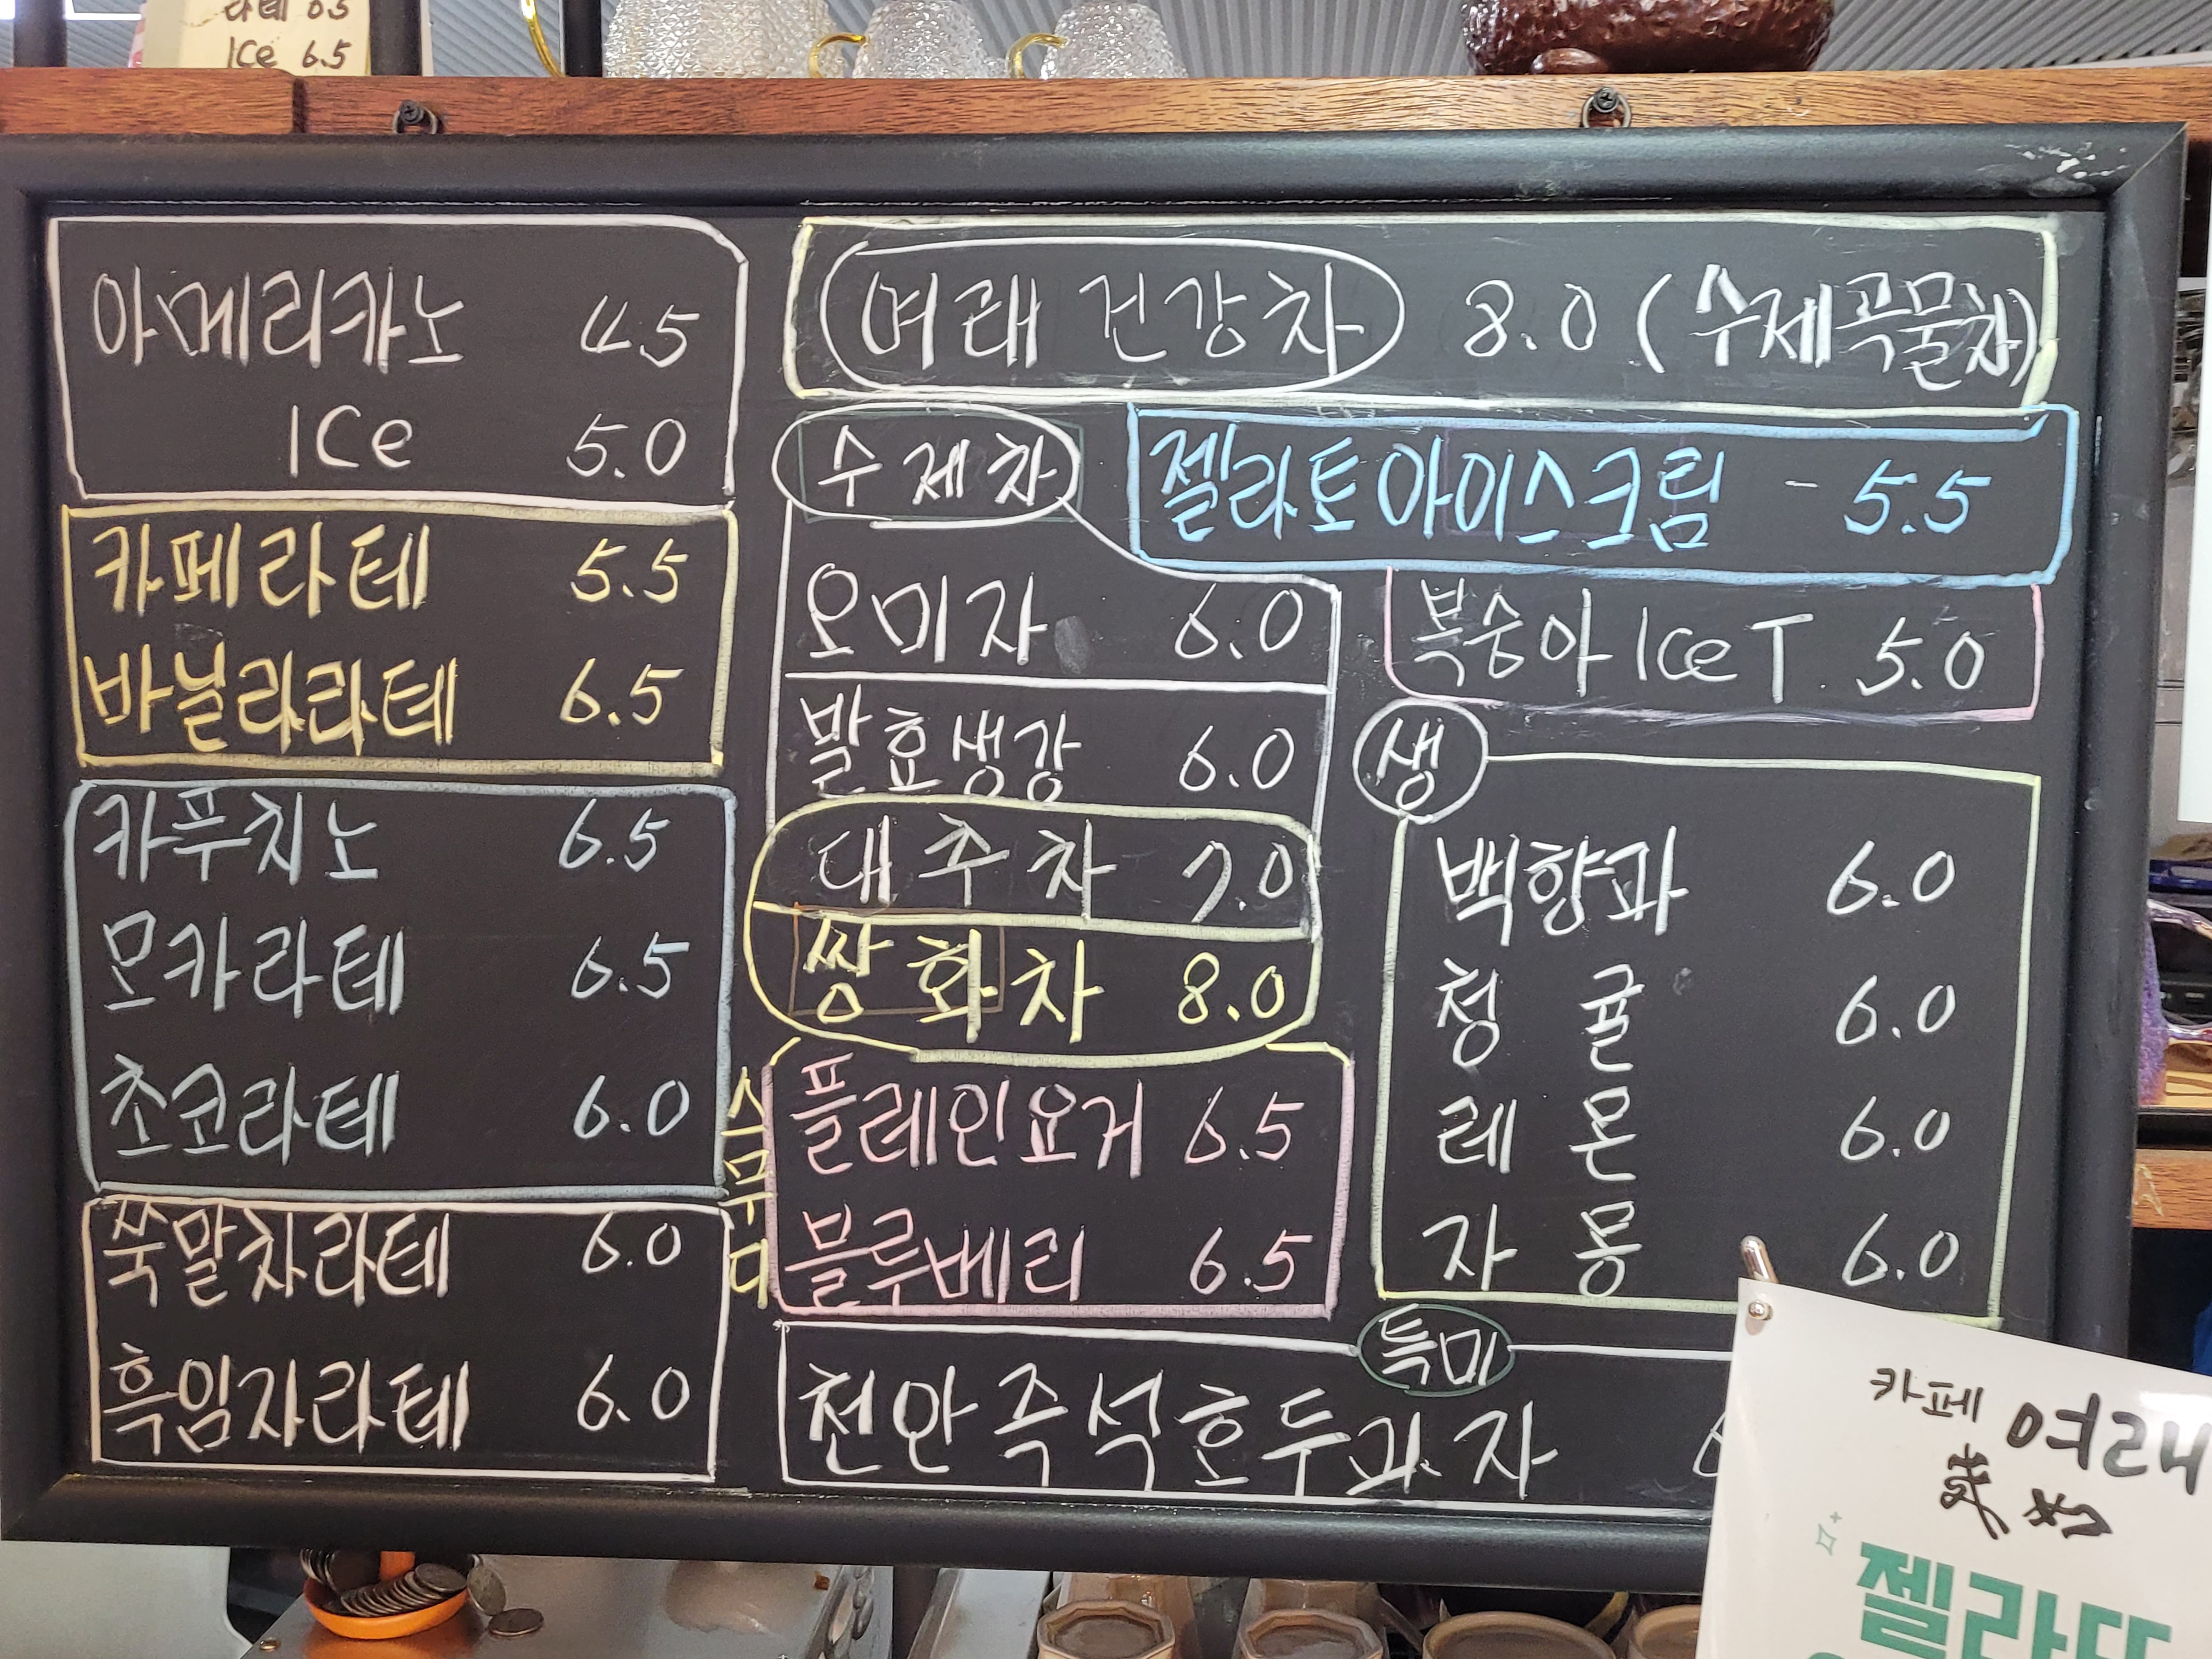 ICe 6.5
아메리카노 4.5
ICe 5.0
카페라테 5.5
바닐라라테 6.5
카푸치노 6.5
모카라테 6.5
초코라테 6.0
쑥말차라테 6.0
흑임자라테 6.0
여래 건강차 8.0 (수제곡물차)
수제차
젤라토아이스크림 - 5.5
오미자 6.0
발효생강 6.0
대추차 7.0
쌍화차 8.0
스무디
플레인요거 6.5
블루베리 6.5
복숭아 Ice T 5.0
생
백향과 6.0
청귤 6.0
레몬 6.0
자몽 6.0
특미
천안즉석호두과자
카페 여래
젤라또